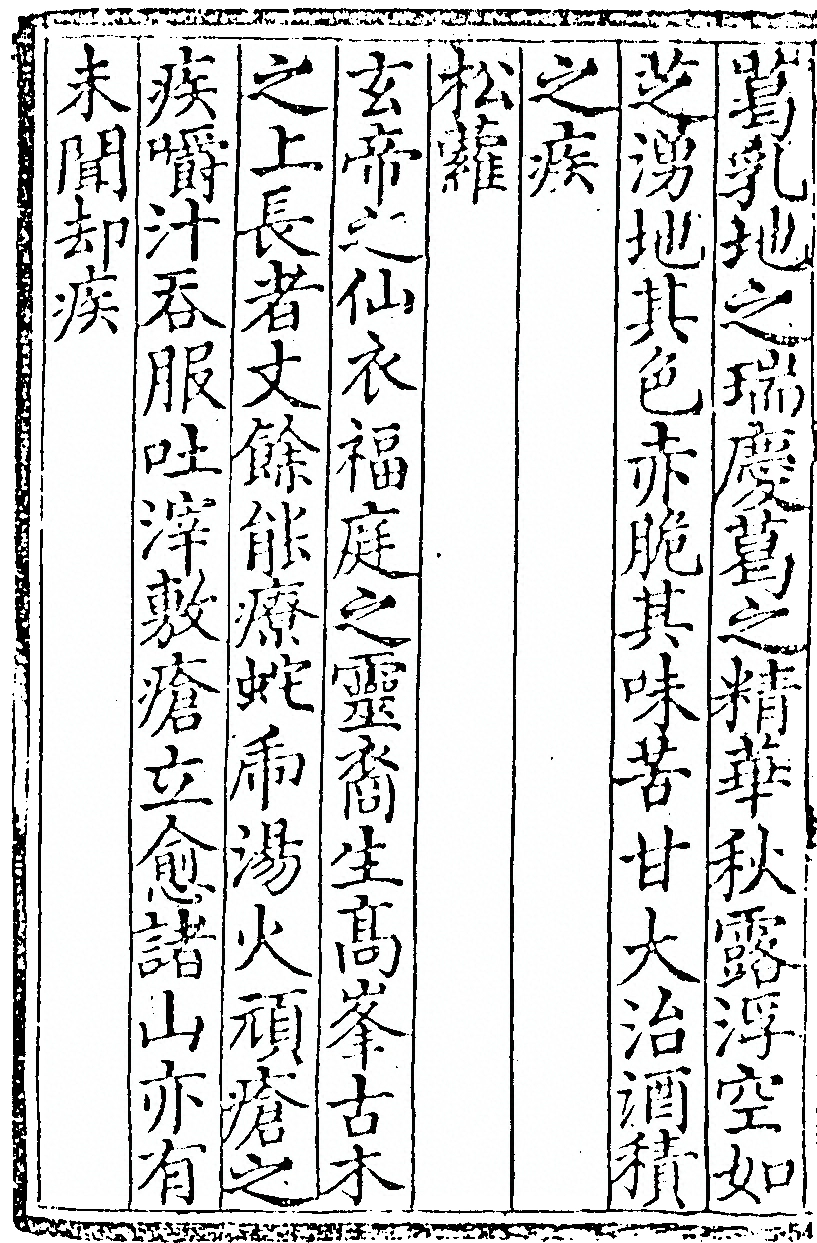 葛乳地之瑞慶葛之精華秋露浮空如
芝湧地其色赤脆其味苦甘大治酒積
之疾
松蘿
玄帝之仙衣福庭之靈裔生高峯古木
之上長者丈餘能療蛇虎湯火頑瘡之
疾嚼汁吞服吐滓敷瘡立愈諸山亦有
未聞却疾
54